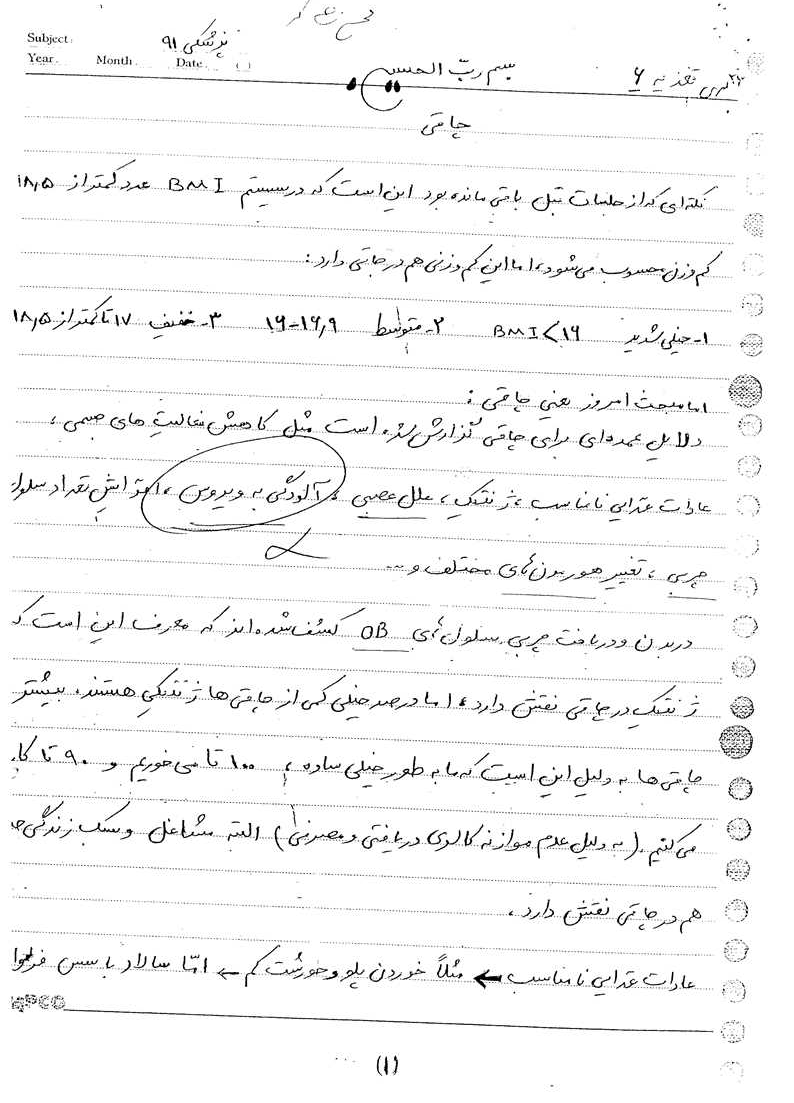 Subject:
پزشکی ۹۱
Year. Month. Date. ( )
بسم ربّ الحسین
تغذیه ۶
چاقی
نکته‌ای که از جلسات قبل باقی مانده بود این است که در سیستم BMI عدد کمتر از ۱۸,۵
کم وزن محسوب می‌شود، اما این کم وزنی هم درجاتی دارد:
۱- خیلی شدید BMI<۱۶ ۲- متوسط ۱۶-۱۶,۹ ۳- خفیف ۱۷ تا کمتر از ۱۸,۵
اما مبحث امروز یعنی چاقی:
دلایل عمده‌ای برای چاقی گزارش شده است مثل کاهش فعالیت های جسمی،
عادات غذایی نامناسب، ژنتیک، علل عصبی، آلودگی به ویروس، افزایش تعداد سلول
چربی، تغییر هورمون‌های مختلف و...
در بدن و در بافت چربی سلول‌های OB کشف شده‌اند که معرف این است که
ژنتیک در چاقی نقش دارد، اما درصد خیلی کمی از چاقی ها ژنتیکی هستند. بیشتر
چاقی ها به دلیل این است که ما به طور خیلی ساده، ۱۰۰ تا می‌خوریم و ۹۰ تا کا
می‌کنیم. (به دلیل عدم موازنه کالری دریافتی و مصرفی) البته مشاغل و سبک زندگی
هم در چاقی نقش دارد.
عادات غذایی نامناسب ← مثلاً خوردن پلو و خورشت کم ← امّا سالاد با سس فراوا
PCO
(۱)